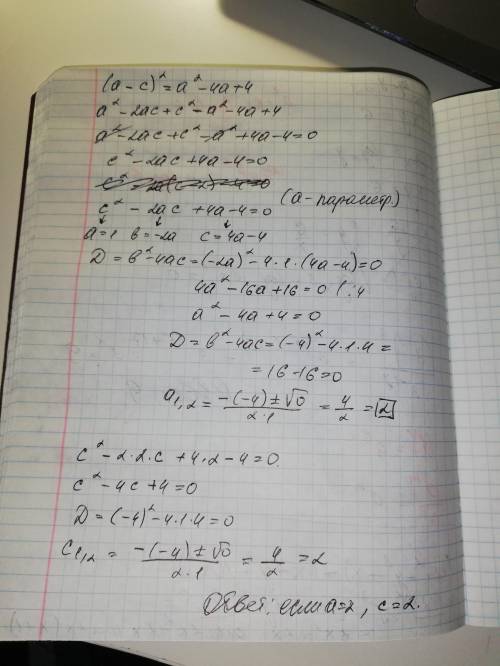 (a-c)² = a² - 4a + 4
a² - 2ac + c² = a² - 4a + 4
a² - 2ac + c² - a² + 4a - 4 = 0
c² - 2ac + 4a - 4 = 0
c² - 2ac + 4a - 4 = 0 (а - параметр.)
a = 1 b = -2a c = 4a - 4
D = b² - 4ac = (-2a)² - 4·1·(4a - 4) = 0
4a² - 16a + 16 = 0 |:4
a² - 4a + 4 = 0
D = b² - 4ac = (-4)² - 4·1·4 =
= 16 - 16 = 0
a₁,₂ = (-(-4) ± √0)/(2·1) = 4/2 = 2
c² - 2·2·c + 4·2 - 4 = 0
c² - 4c + 4 = 0
D = (-4)² - 4·1·4 = 0
c₁,₂ = (-(-4) ± √0)/(2·1) = 4/2 = 2
Ответ: если a = 2, c = 2.